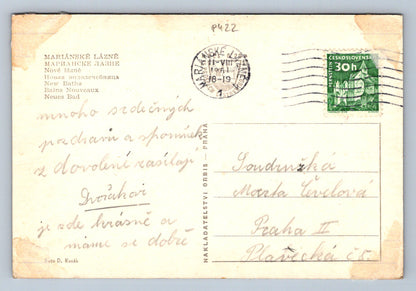 P422
MARIÁNSKÉ LÁZNĚ
МАРИАНСКЕ ЛАЗНЕ
Nové lázně
Новая водолечебница
New Baths
Bains Nouveaux
Neues Bad
MARIÁNSKÉ LÁZNĚ
11.VIII
1961
18-19
1
ČESKOSLOVENSKO
30h
PERNŠTEJN
mnoho srdečných
pozdravů a vzpomínek
z dovolené zasílají
Dvořákovi
je zde krásně a
máme se dobře
Foto D.
NAKLADATELSTVÍ ORBIS - PRAHA
Soudružka
Marta
Praha II
Plavecká č. 6.